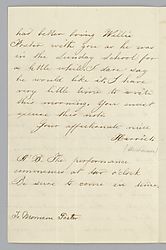 had better bring Willie
Foster with you as he was
in the Sunday School for
a little while. I dare say
he would like it. I have
very little time to write
this morning. You must
excuse this note
Your affectionate niece
Harriet
N.B. The performance
commences at two o'clock
Be sure to come in time.
To Morrison Foster